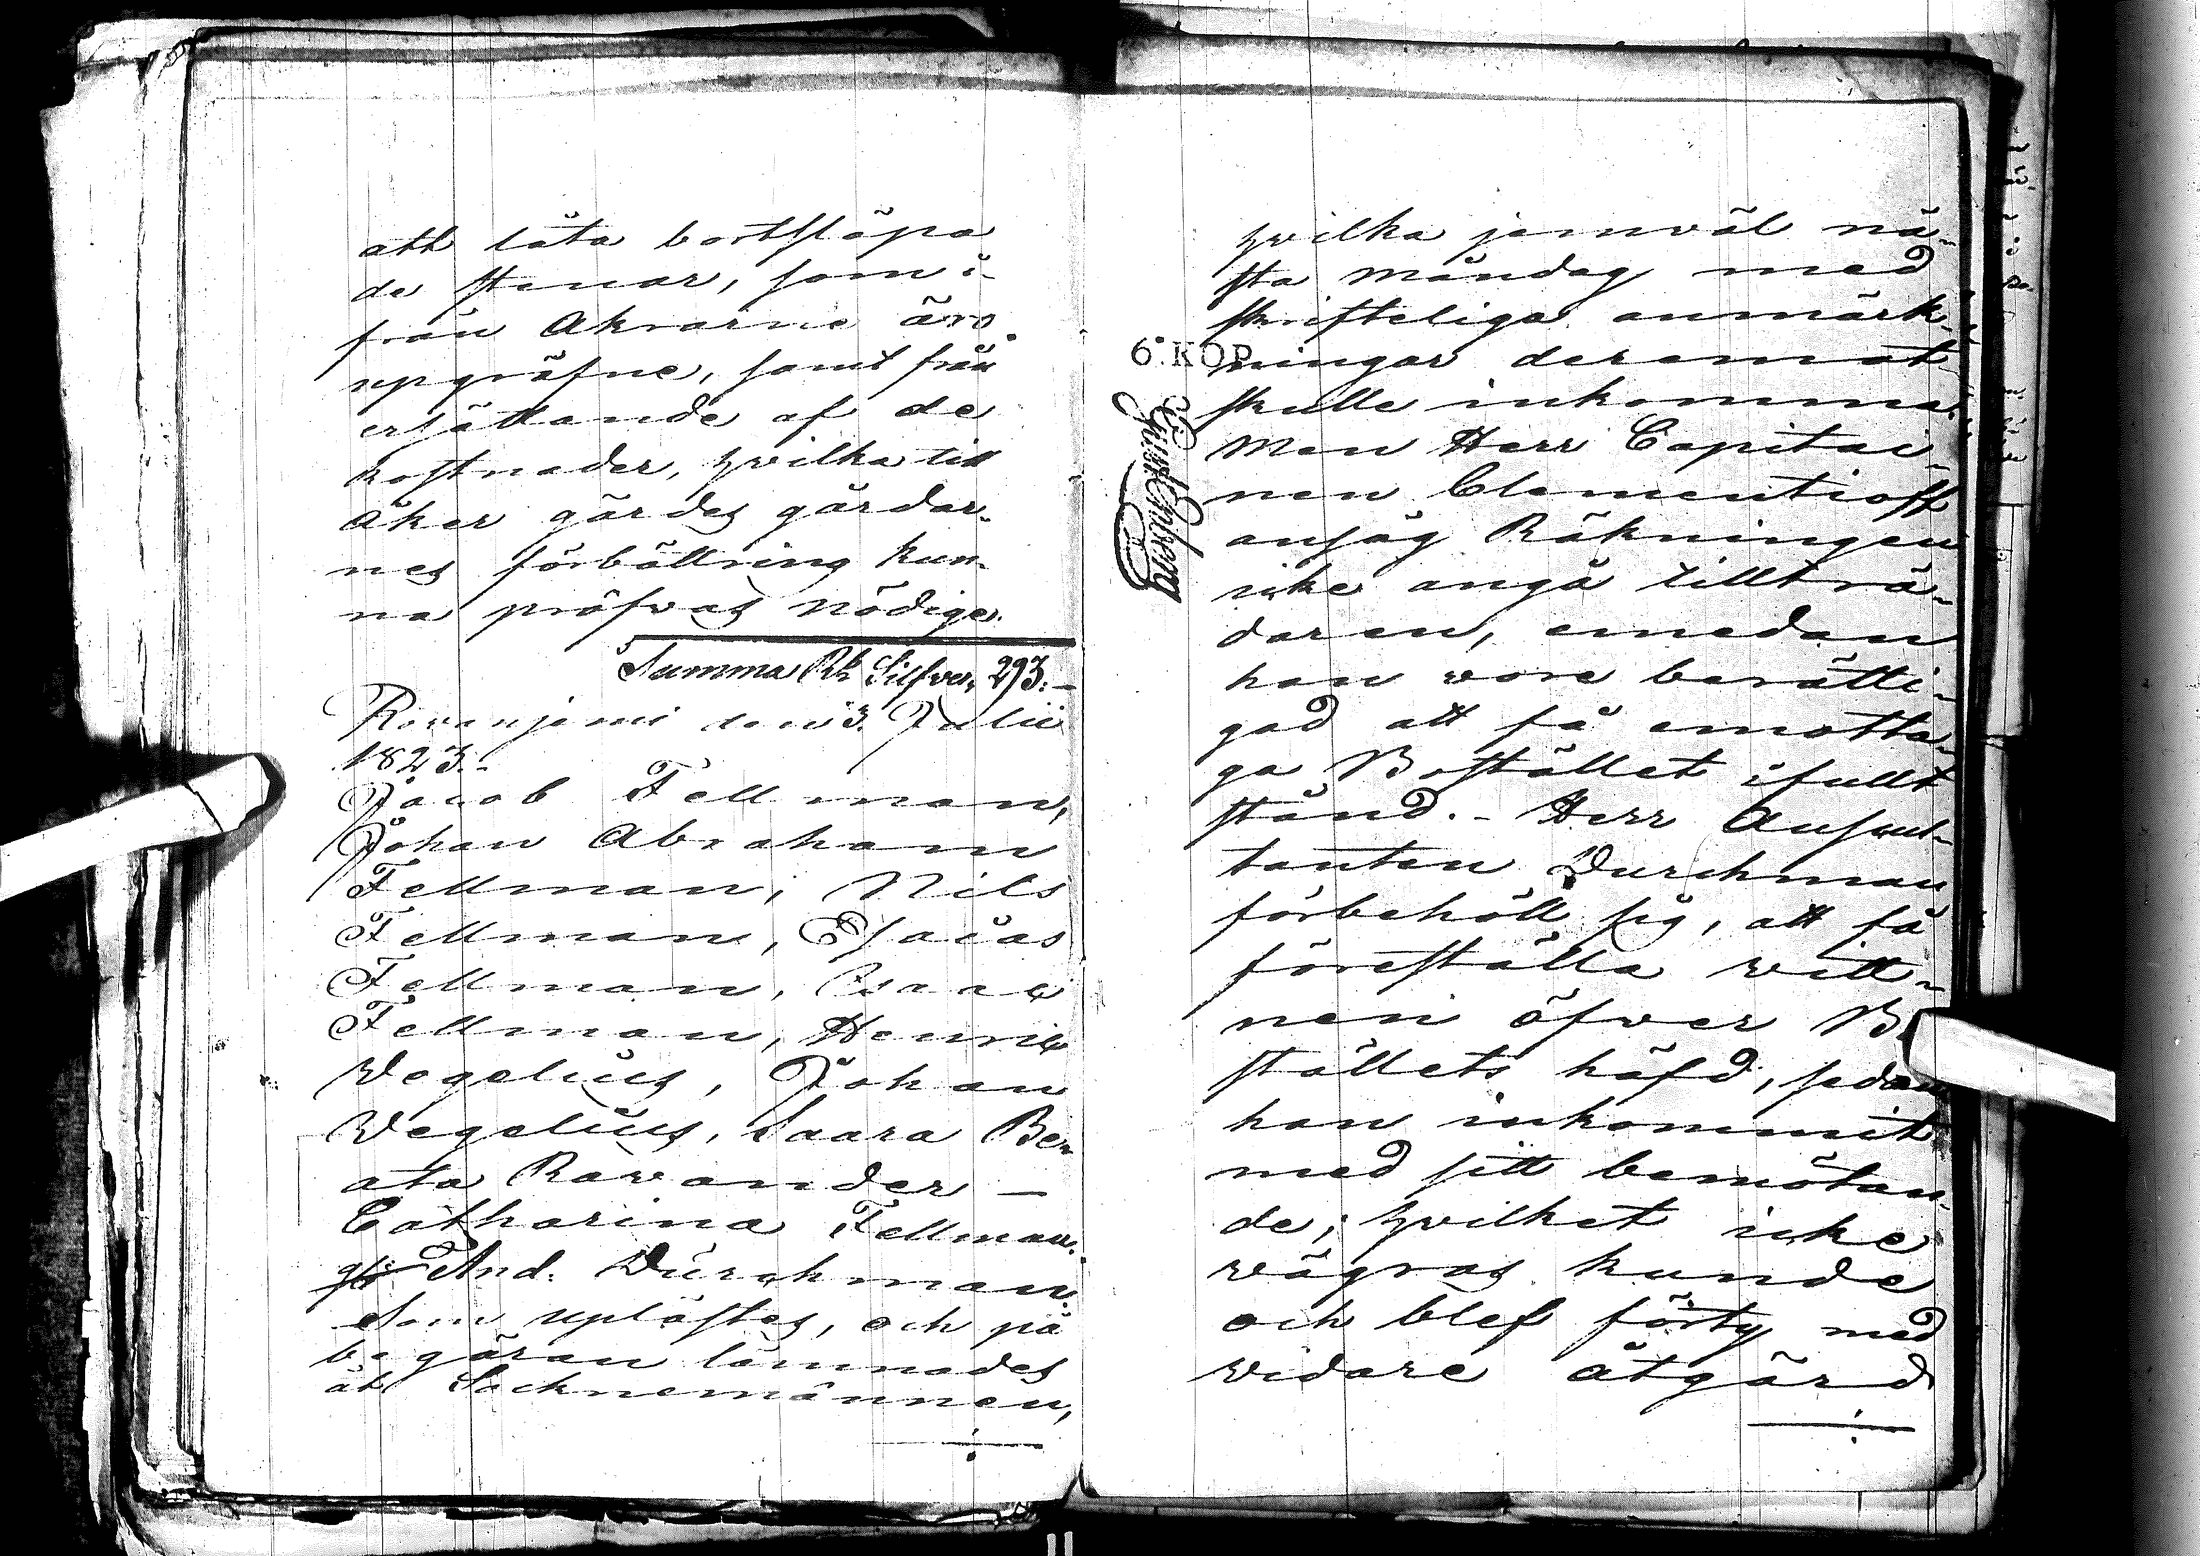 att låta bortsläpa
de stenar, som i-
från Åkrarne äro
upgräfne, samt från
ersättande af de
kostnader, hvilka till
åker gärdes gärdar-
nes förbättring kun-
na pröfwas nödige.
Summa Rb Silfver 293:-
Rovanjemi den 3. Julii
1823.-
Jacob Fellman,
Johan Abraham
Fellman, Nils
Fellman, Esaias
Fellman, Isaac
Fellman, Henric
Wegelius, Johan
Wegelius, Saara Be-
ata Ravander -
Catharina Fellman.
And. Durchman.
Som uplästes, och på
begäran lämnades
åt Socknemännen,
hvilka jemväl nä-
sta Måndag med
skrifteliga anmärk-
6 KOP.
ningar deremot
skulle inkomma.
Men Herr Capitai-
nen Clementioff
ansåg Räkningen
icke angå tillträ-
daren, emedan
han vore berätti-
gad att få emotta-
ga Bostället i fullt
stånd. - Herr Auscul-
tanten Durchman
förbehöll sig, att få
föreställa witt-
nen öfwer Bo
ställets häfd, sedan
han inkommit
med sitt bemötan-
de; hvilket icke
vägras kunde
och blef förty med
vidare åtgärd